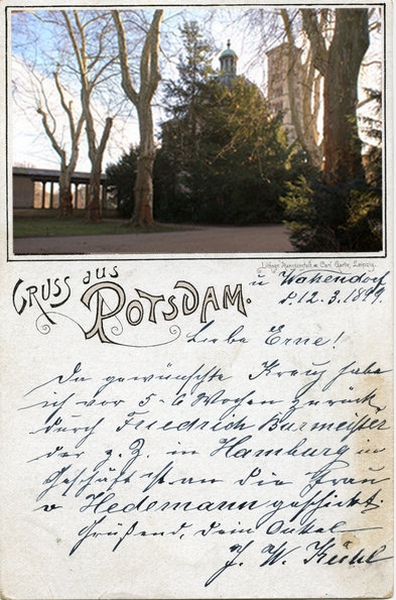 Lithogr. Kunstanstalt v. Carl Garte, Leipzig.
Gruss aus
Potsdam.
u Wakendorf
d. 12. 3. 1899.
Liebe Erne!
Da gewünschte Kreuz habe
ich vor 5-6 Wochen zurück
durch Friedrich Burmeister
der z. Z. in Hamburg in
Geschäft ist an die Frau
v Hedemann geschickt.
Grüßend, dein Onkel
J. W. Kühl